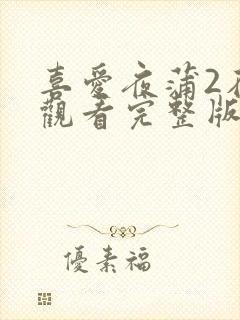 喜愛夜蒲2在
觀看完整版
優素福